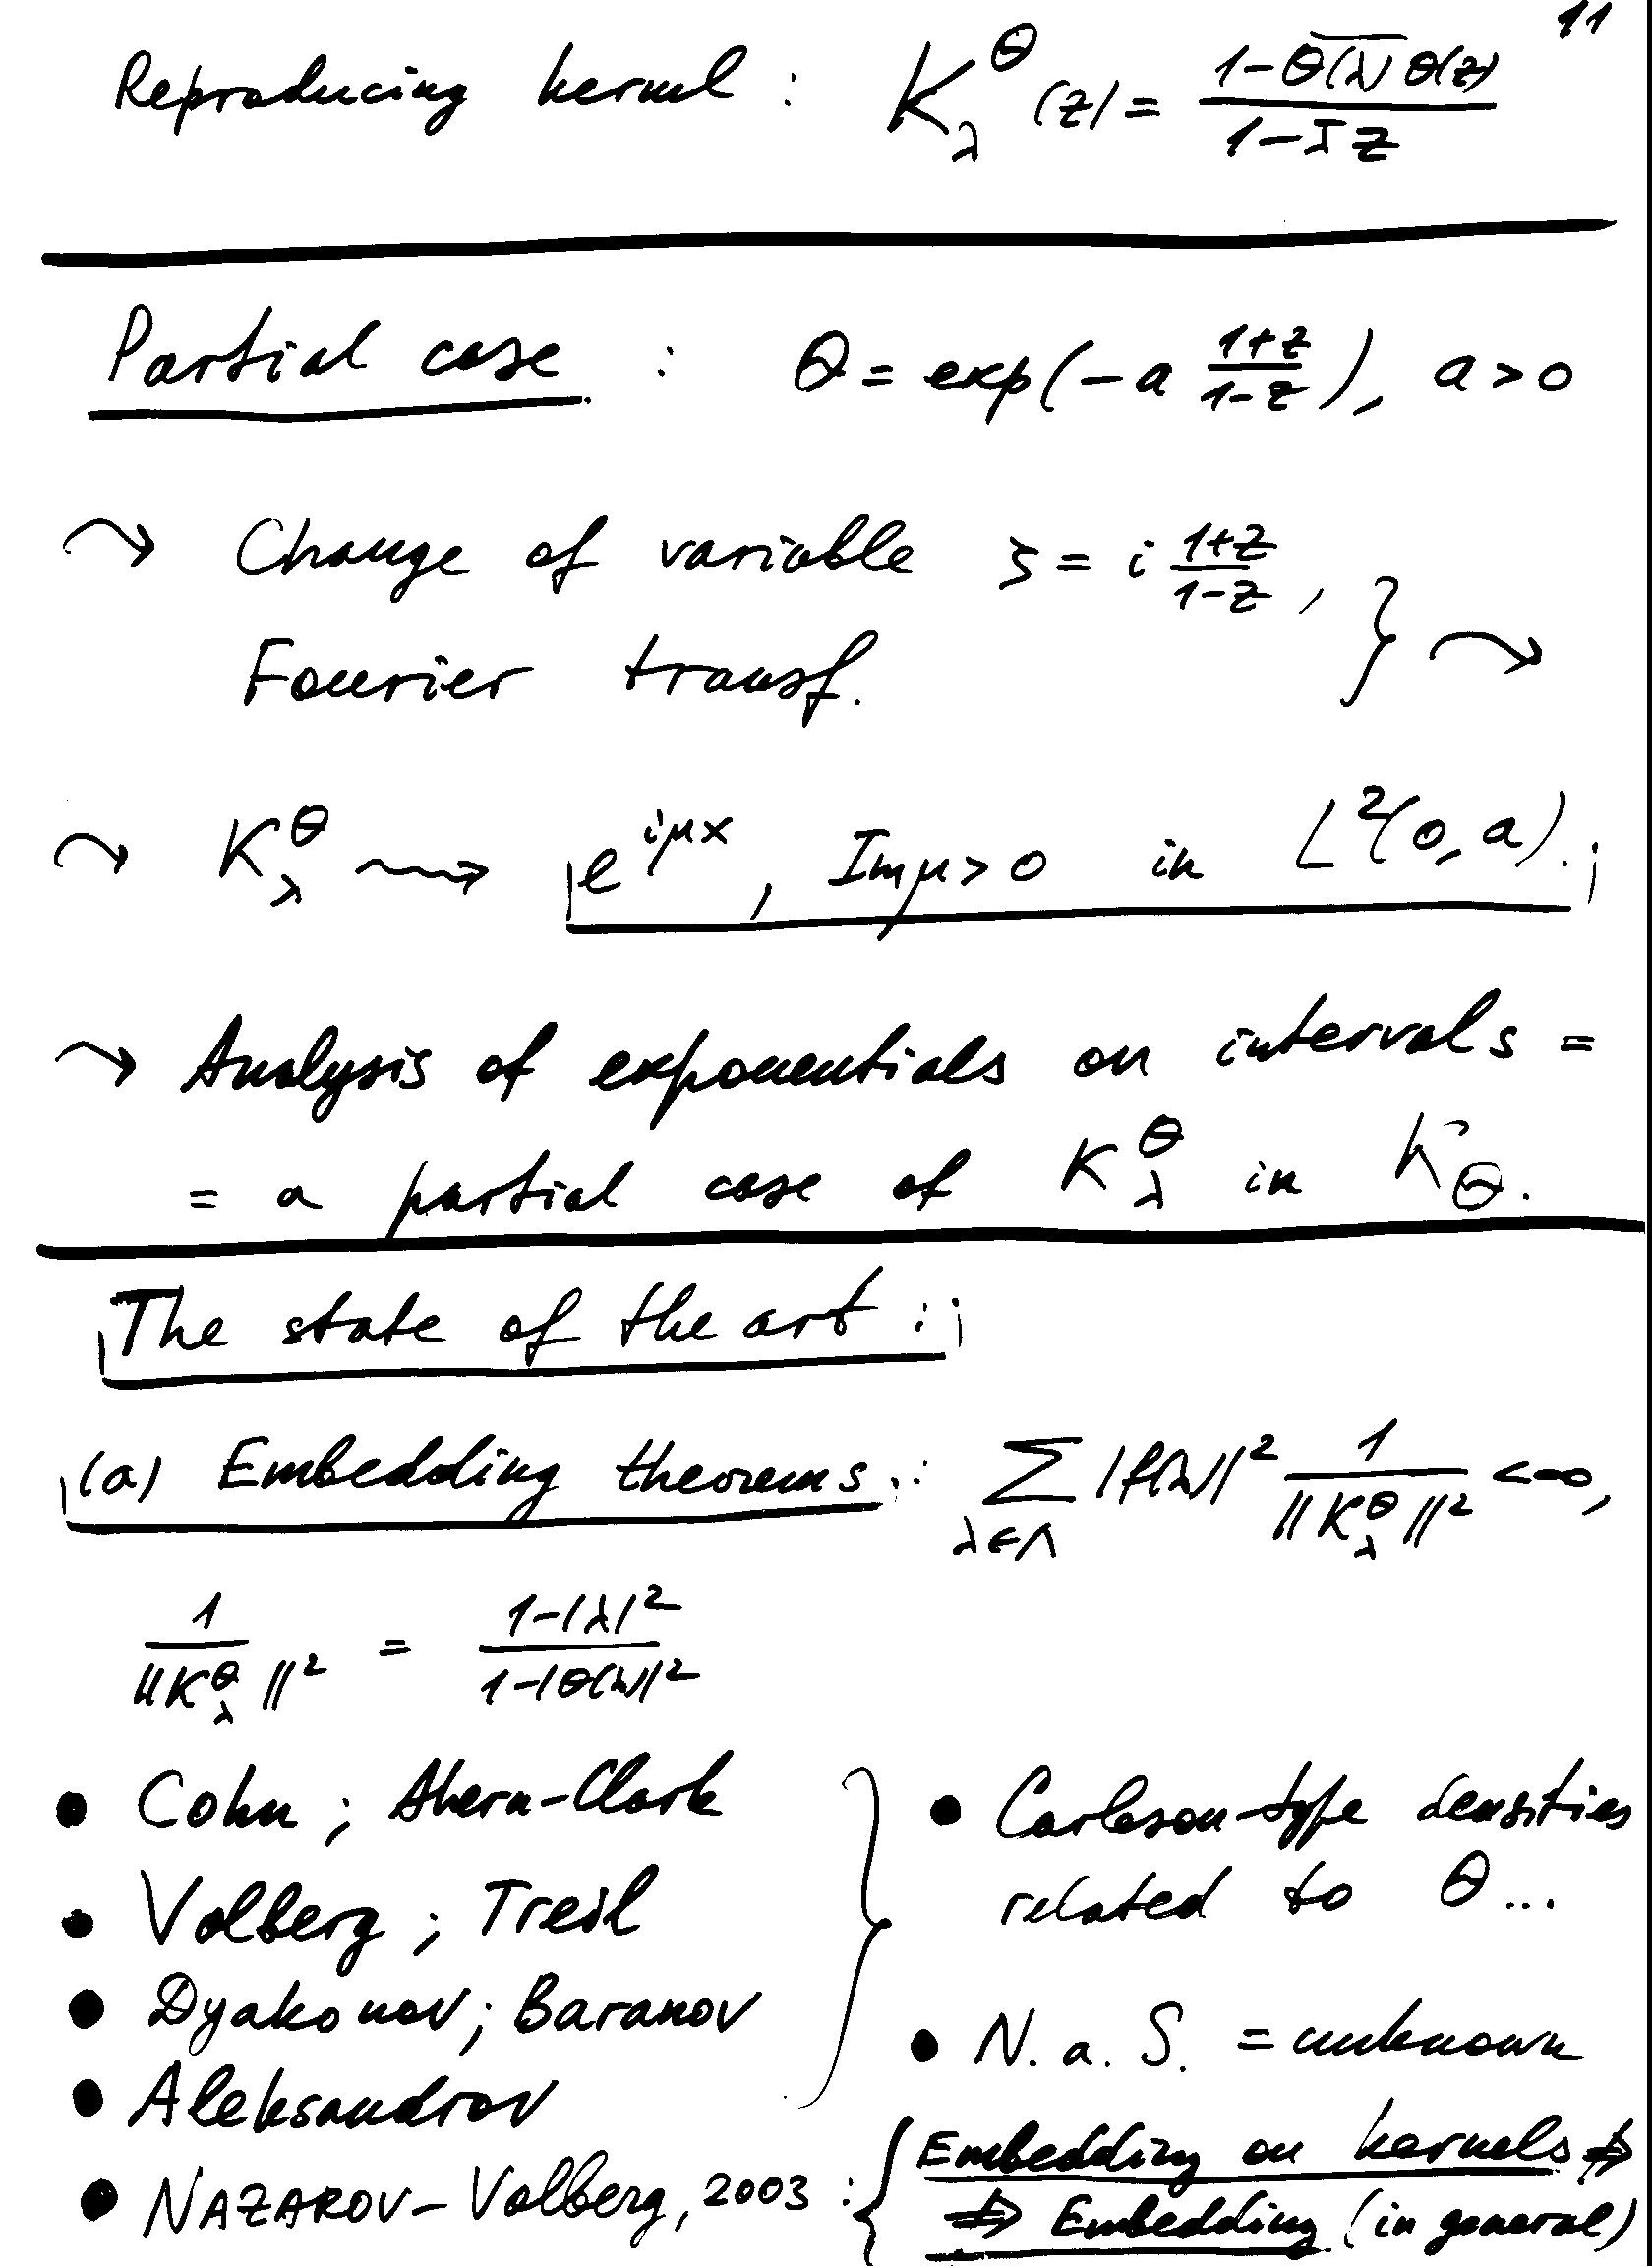 11
Reproducing kernel : K_λ^Θ (z) = \frac{1-\overline{Θ(λ)} Θ(z)}{1-\bar{λ} z}
Partial case : Θ = exp(-a \frac{1+z}{1-z}), a > 0
⤳ Change of variable ζ = i \frac{1+z}{1-z},
Fourier transf. } ⤳
⤳ K_λ^Θ ⟿ e^{iμx}, Im μ > 0 in L^2(0, a).
⤳ Analysis of exponentials on intervals =
= a partial case of K_λ^Θ in K_Θ.
The state of the art :
(a) Embedding theorems : \sum_{λ∈Λ} |f(λ)|^2 \frac{1}{||K_λ^Θ||^2} < ∞,
\frac{1}{||K_λ^Θ||^2} = \frac{1-|λ|^2}{1-|Θ(λ)|^2}
• Cohn ; Ahern-Clark
• Volberg ; Treil
• Dyakonov ; Baranov
• Aleksandrov
• Carleson-type densities
related to Θ ...
• N. a. S. = unknown
• NAZAROV - Volberg, 2003 : { Embedding on kernels ⇏
⇏ Embedding (in general)